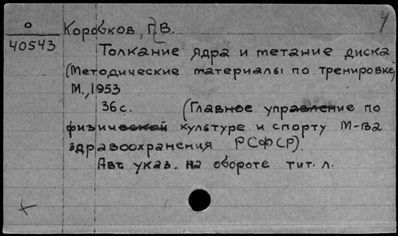 О
40543
Коробков, Г.В.
Толкание ядра и метание диска
(Методические материалы по тренировке)
М., 1953
36с. (Главное управление по
физической культуре и спорту М-ва
здравоохранения РСФСР).
Авт. указ. на обороте тит. л.